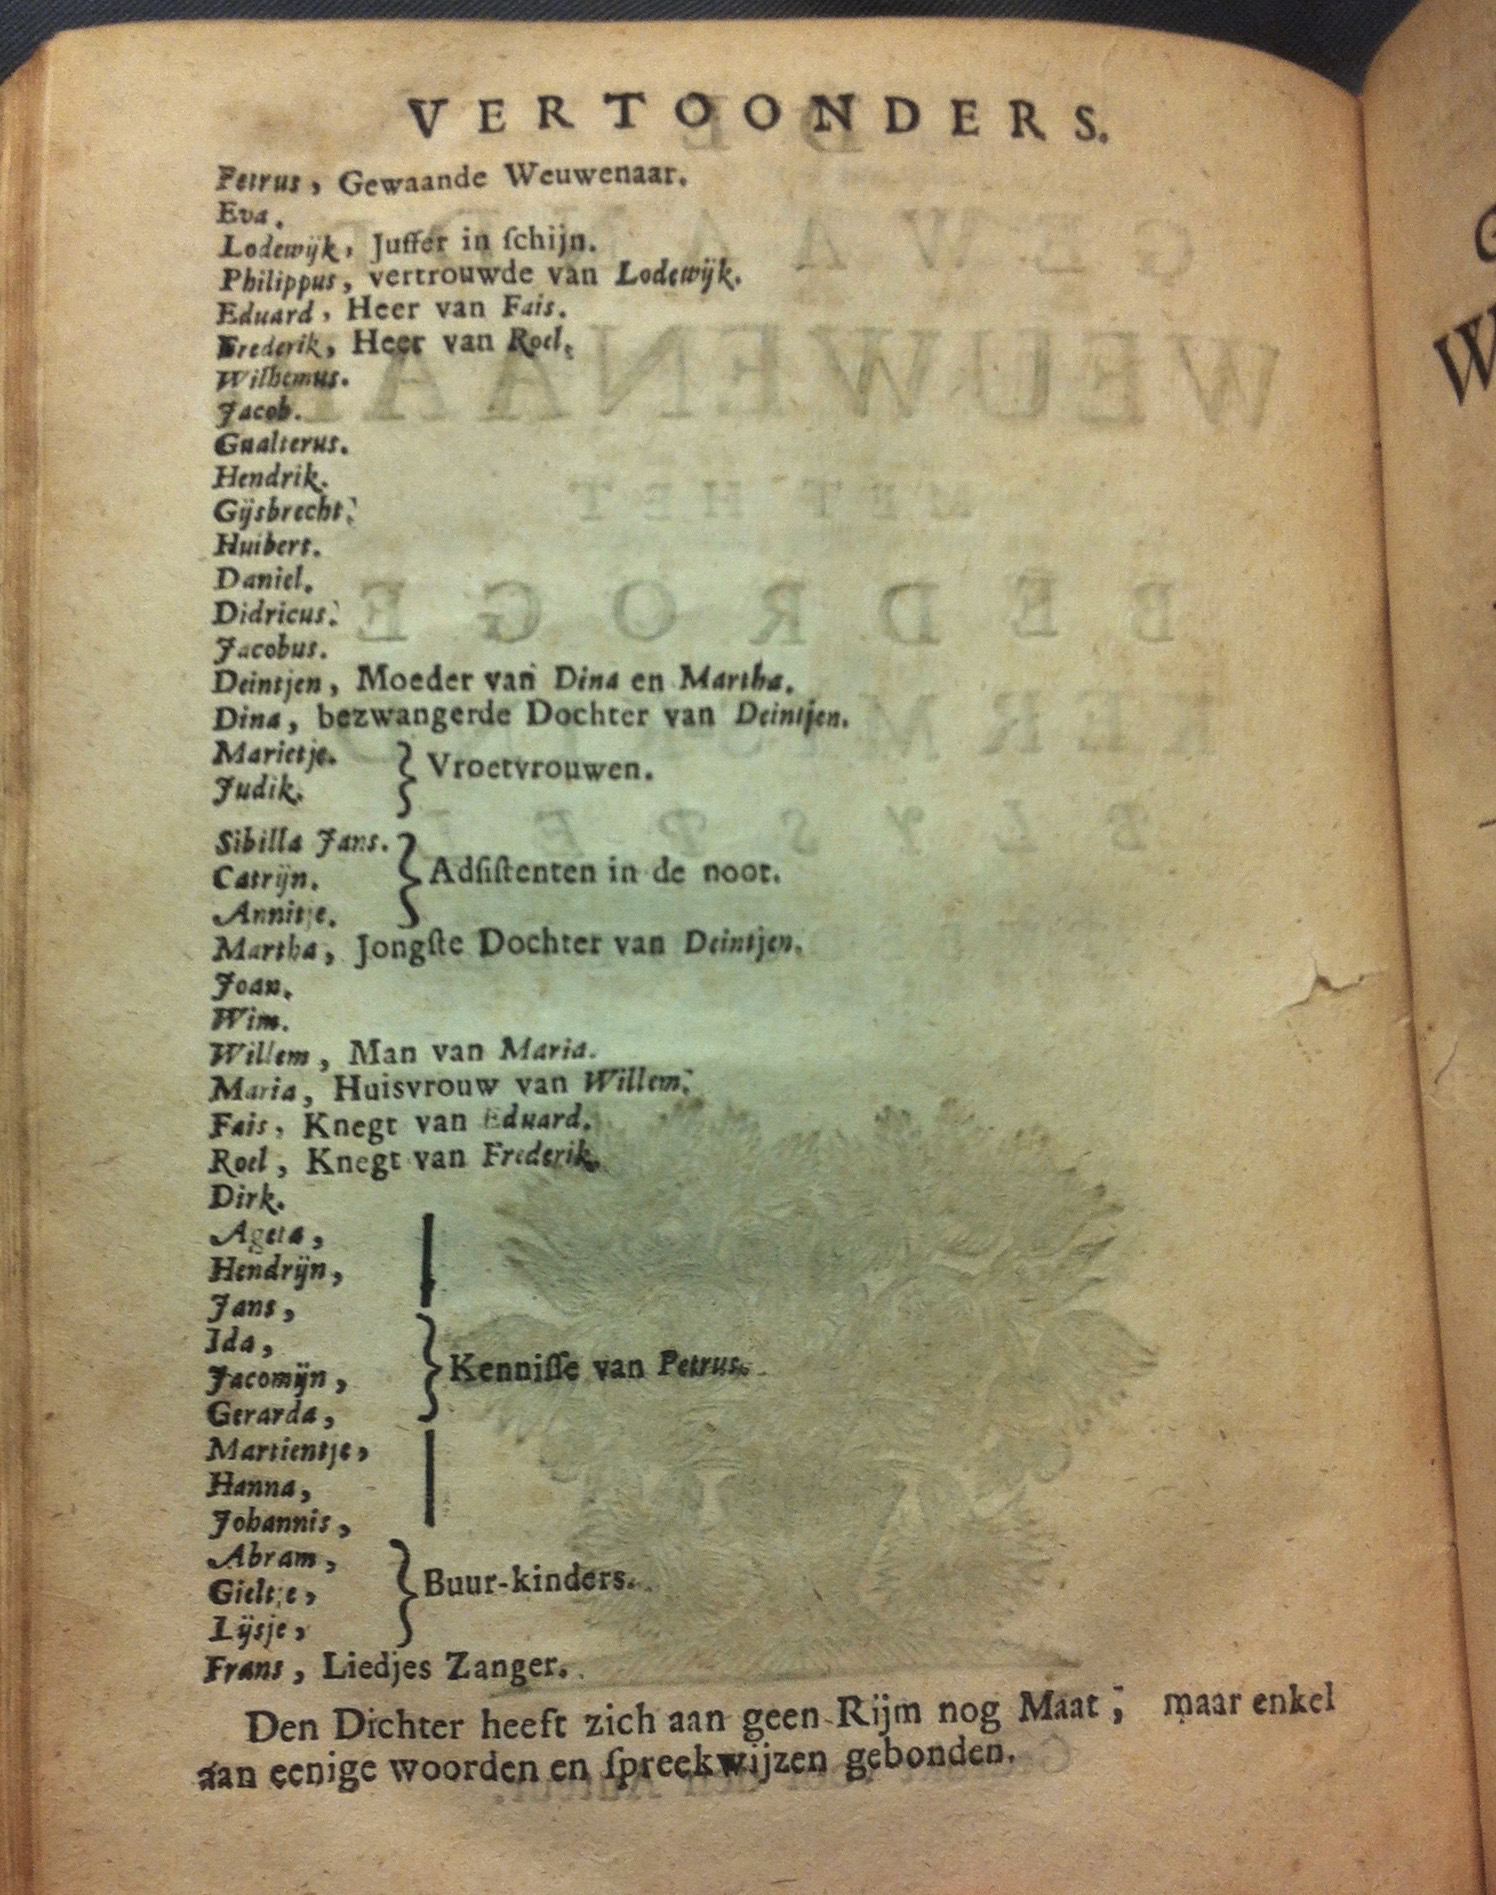 VERTOONDERS.
Petrus, Gewaande Weuwenaar.
Eva.
Lodewijk, Juffer in ſchijn.
Philippus, vertrouwde van Lodewijk.
Eduard, Heer van Fais.
Frederik, Heer van Roel.
Wilhemus.
Jacob.
Gualterus.
Hendrik.
Gijsbrecht.
Huibert.
Daniel.
Didricus.
Jacobus.
Deintjen, Moeder van Dina en Martha.
Dina, bezwangerde Dochter van Deintjen.
Marietje.
Judik.
Vroetvrouwen.
Sibilla Jans.
Catrijn.
Annitje.
Adſiſtenten in de noot.
Martha, Jongſte Dochter van Deintjen.
Joan.
Wim.
Willem, Man van Maria.
Maria, Huisvrouw van Willem.
Fais, Knegt van Eduard.
Roel, Knegt van Frederik.
Dirk.
Ageta,
Hendrijn,
Jans,
Ida,
Jacomijn,
Gerarda,
Martientje,
Hanna,
Johannis,
Kenniſſe van Petrus.
Abram,
Gieltje,
Lijsje,
Buur-kinders.
Frans, Liedjes Zanger.
Den Dichter heeft zich aan geen Rijm nog Maat; maar enkel
aan eenige woorden en ſpreekwijzen gebonden.